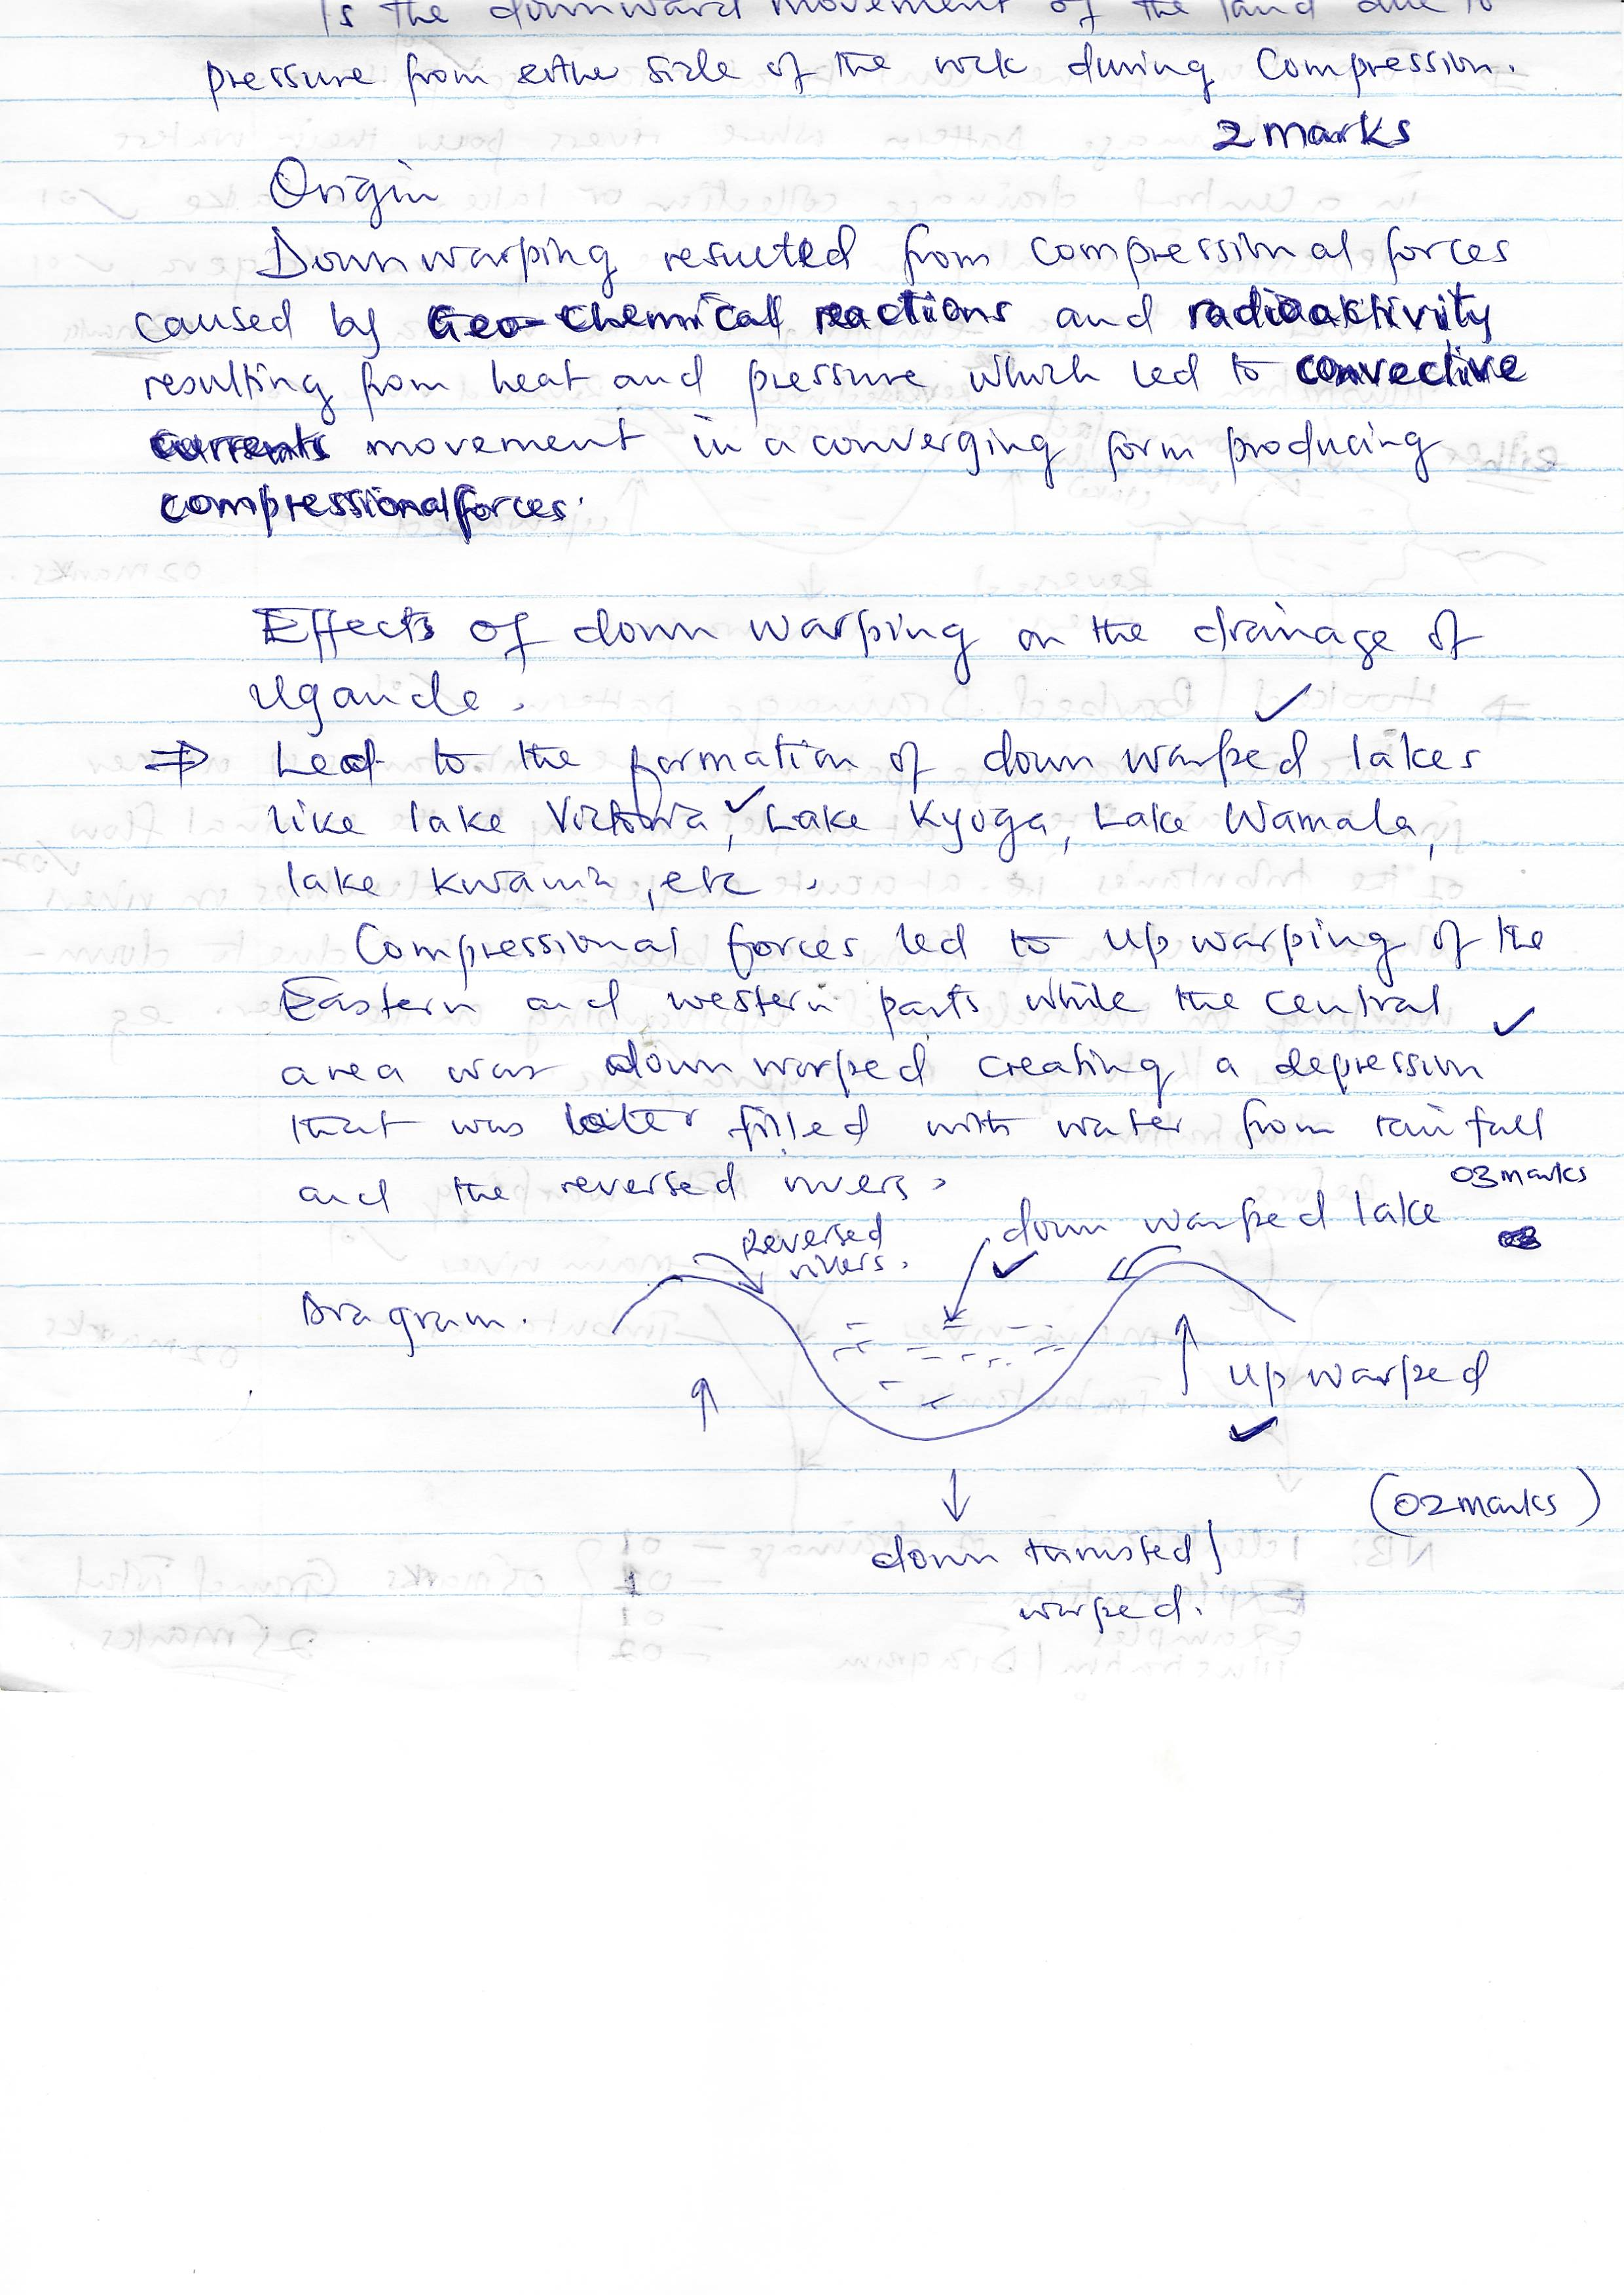 Is the downward movement of the land due to
pressure from either side of the rock during Compression.
2 marks
Origin
Downwarping resulted from compressional forces
caused by Geo-chemical reactions and radioaktivity
resulting from heat and pressure which led to convective
currents movement in a converging form producing
compressional forces.
Effects of down warping on the drainage of
Uganda.
⇒ Lead to the formation of down warped lakes ✓
like lake Victoria ✓, Lake Kyoga, Lake Wamala,
lake Kwania, etc.
Compressional forces led to up warping of the
Eastern and western parts while the central
area was down warped creating a depression ✓
that was later filled with water from rainfall
and the reversed rivers.
03 marks
down warped lake ✓
Reversed
rivers.
Diagram.
Up warped ✓
(02 marks)
down thrusted/
warped.